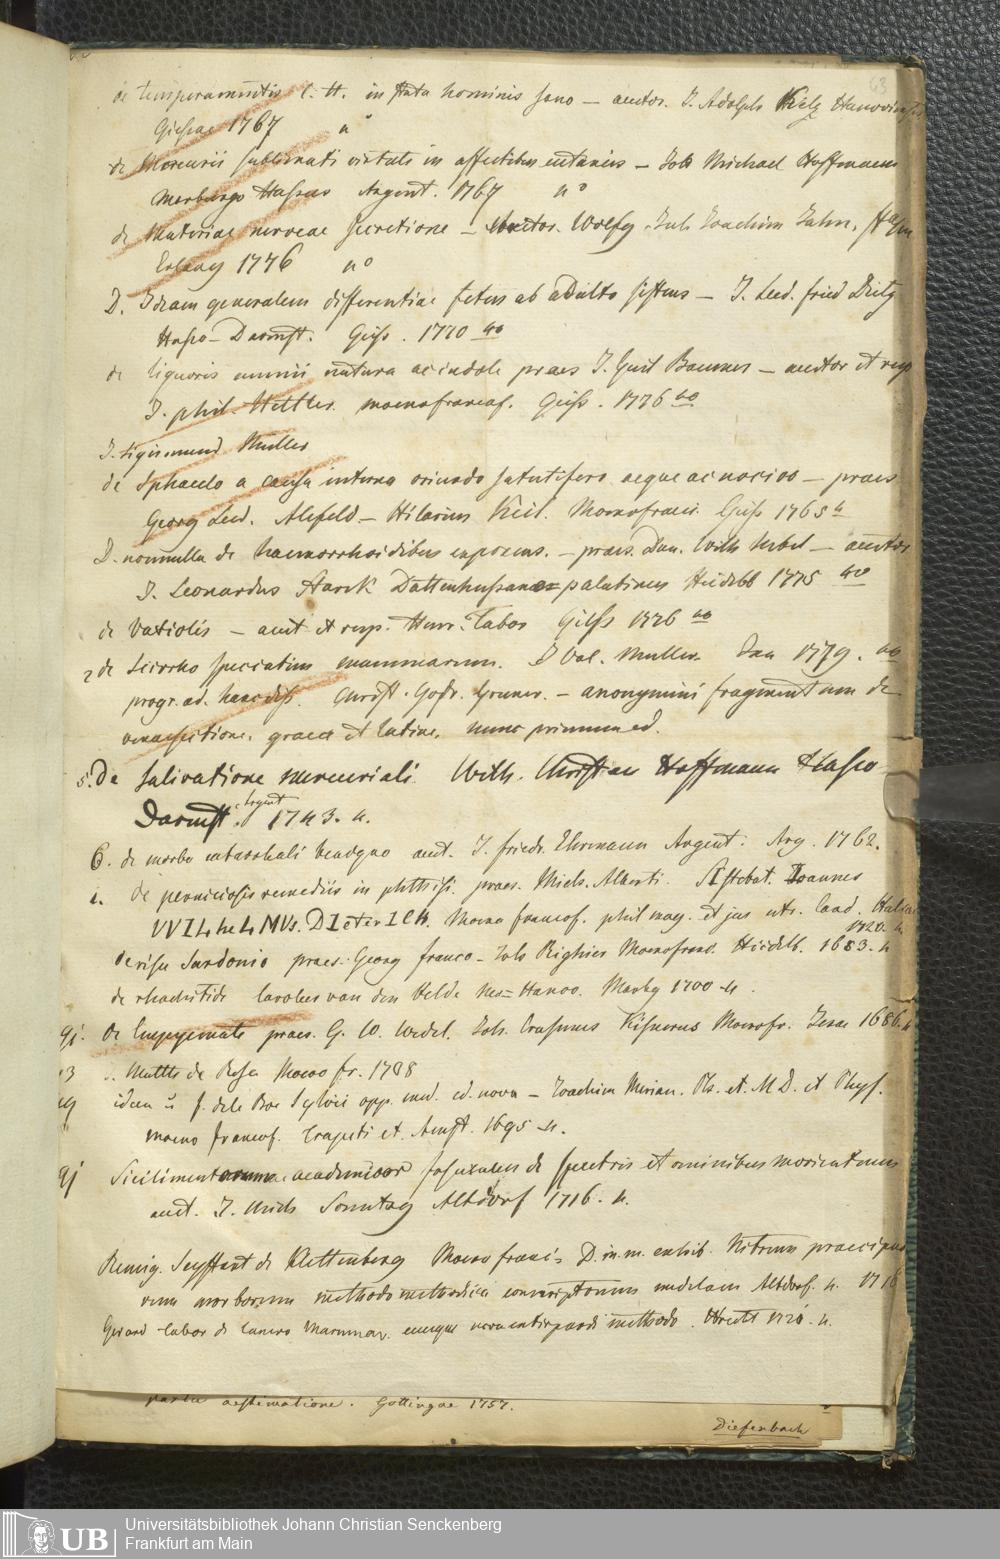 63
de temperamentis C. H. in statu hominis sano — auctor. J. Adolph Hanoviensis
Giessae 1767 n°
de Mercurii sublimati virtute in affectibus cutaneis — Joh Michael Hoffmann
Marburgo Hassus Argent. 1767 n°
de Materiae nerveae secretione — Auctor. Wolfg. Joachim Jahn,
Erlang 1776 n°
D. Ideam generalem differentiae fetus ab adulto sistens — J. Lud. fried Dietz
Hasso-Darmst. Giss. 1770 4o
de liquoris natura ac indole praes J. Guil Baumer — auctor et resp
J. phil Hettler moenofrancof. Giss. 1776 4o
J. Sigismund Muller
de Sphacelo a causa interna oriundo salutifero aeque ac nocivo — praes
Georg Lud. Alefeld — Hilarius Moenofranc. Giss 1765 4
D. nonnulla de haemorrhoidibus exponens. — praes. Dan. Wilh Nebel — auctor
J. Leonardus Starck palatinus Heidelb 1775 4o
de Variolis — auct et resp. Henr. Tabor Giss 1776 4o
2 de Scirrho speciatim mammarum. J Val. Muller Jan 1779. 4o
progr. ad. hanc diss. Christ. Gofr. Gruner. — anonymini fragmentum de
venaesectione. graece et latine. nunc primum ed.
5. De Salivatione mercuriali. Wilh. Christian Hoffmann Hasso
Darmst. Argent 1743. 4.
6. de morbo catarrhali benigno auct. J. friedr. Ehrmann Argent. Arg. 1762.
1. de perniciosis remediis in phthisi. praes. Mich. Alberti. Sistebat. Ioannes
VVILheLMVs. DIeterICH. Moeno francof. phil mag. et jur utr. Cand. Halae
1720. 4
de risu Sardonio praes. Georg franco — Joh Moenofranc. Heidelb. 1683. 4
de rhachitide Carolus van den Velde Hanov. Marbg 1700 4.
9j. de Empyemate praes. G. W. Wedel. Joh. Erasmus Kisnerus Moenofr. Jenae 1686. 4
13 J. Matth de Moeno fr. 1708
idea f. dele Boe Sylvii opp. med. ed. nova — Joachim Merian. Ph. et. M D. et Phys.
moeno francof. Trajecti et. Amst. 1695 4.
9j de Spectris et ominibus morientium
auct. J. Mich Sonntag Altdorf 1716. 4.
Remig. Seyffart de Klettenberg Moeno franc. D. in. m. exhib. Nitrum praecipuo
rum morborum methodo methodica conscriptorum medelam Altdorf. 4. 1716
Gerard Tabor de Cancro Mammar. eumque nova extirpandi methodo. Utrecht 1720. 4.
aestimatione. Gottingae 1757.
Diefenbach
UB
Universitätsbibliothek Johann Christian Senckenberg
Frankfurt am Main